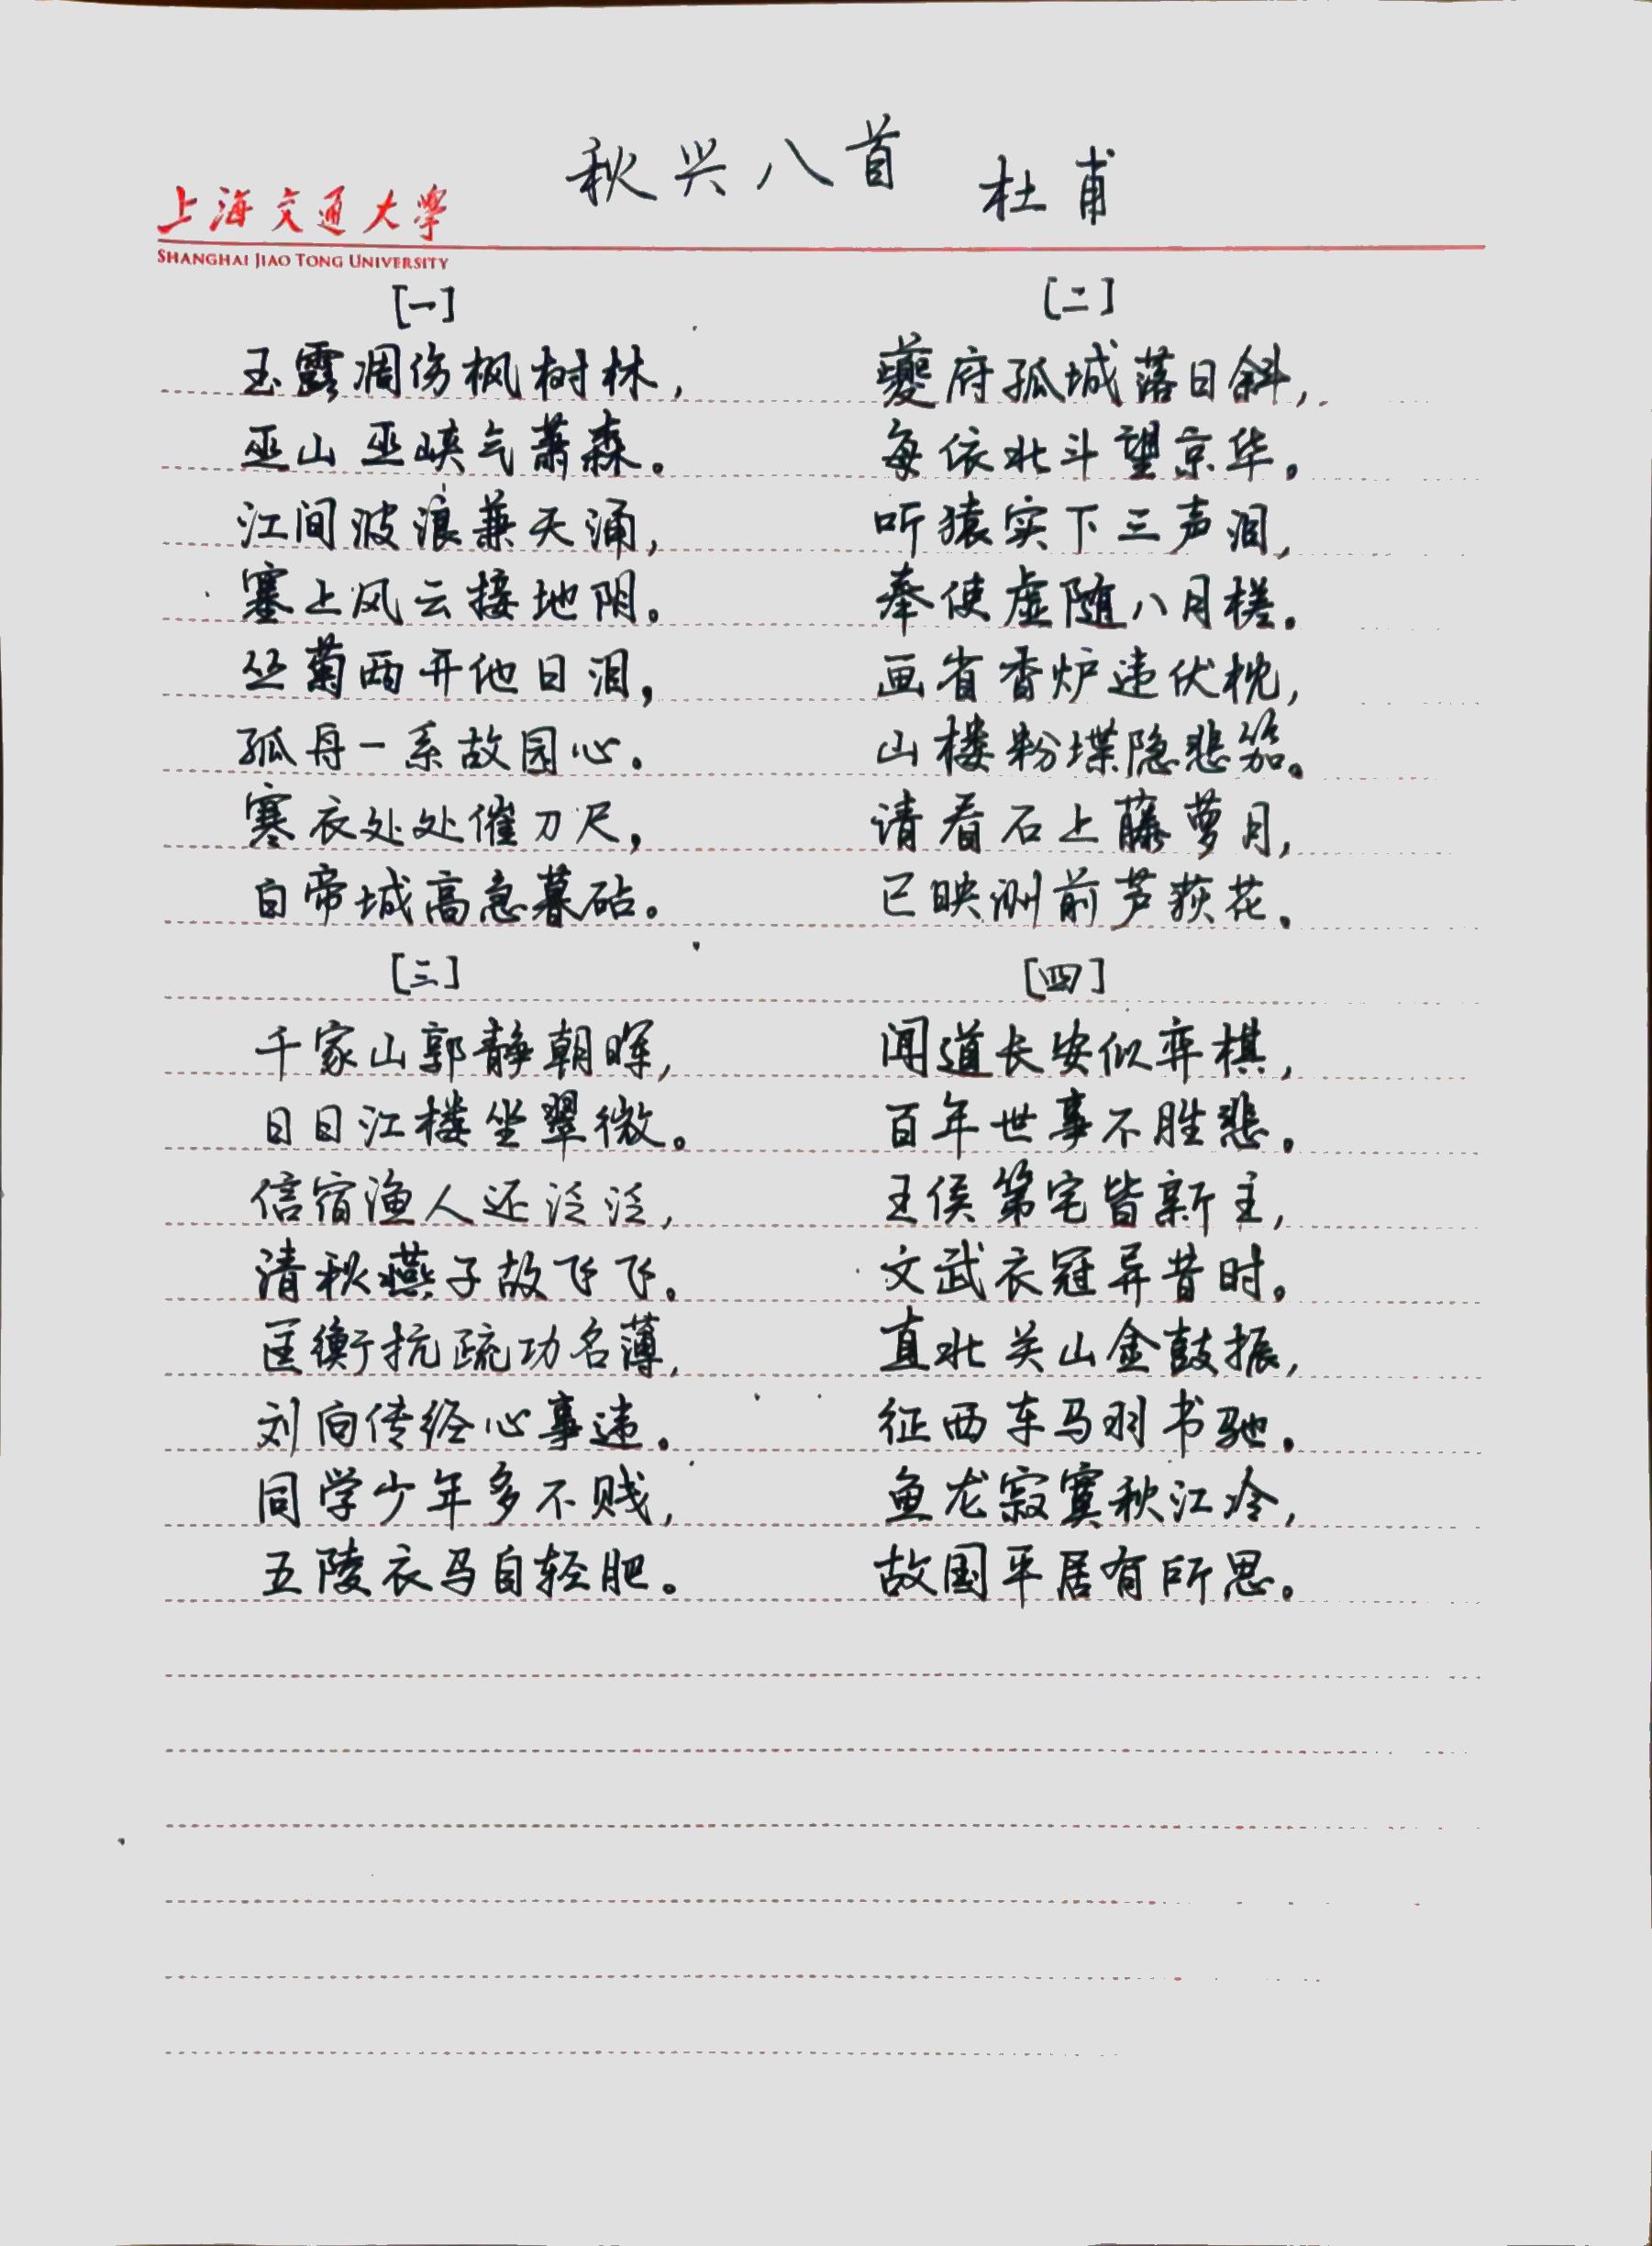 秋兴八首 杜甫
上海交通大學
SHANGHAI JIAO TONG UNIVERSITY
[一]
玉露凋伤枫树林,
巫山巫峡气萧森。
江间波浪兼天涌,
塞上风云接地阴。
丛菊两开他日泪,
孤舟一系故园心。
寒衣处处催刀尺,
白帝城高急暮砧。
[二]
夔府孤城落日斜,
每依北斗望京华。
听猿实下三声泪,
奉使虚随八月槎。
画省香炉违伏枕,
山楼粉堞隐悲笳。
请看石上藤萝月,
已映洲前芦荻花。
[三]
千家山郭静朝晖,
日日江楼坐翠微。
信宿渔人还泛泛,
清秋燕子故飞飞。
匡衡抗疏功名薄,
刘向传经心事违。
同学少年多不贱,
五陵衣马自轻肥。
[四]
闻道长安似弈棋,
百年世事不胜悲。
王侯第宅皆新主,
文武衣冠异昔时。
直北关山金鼓振,
征西车马羽书驰。
鱼龙寂寞秋江冷,
故国平居有所思。